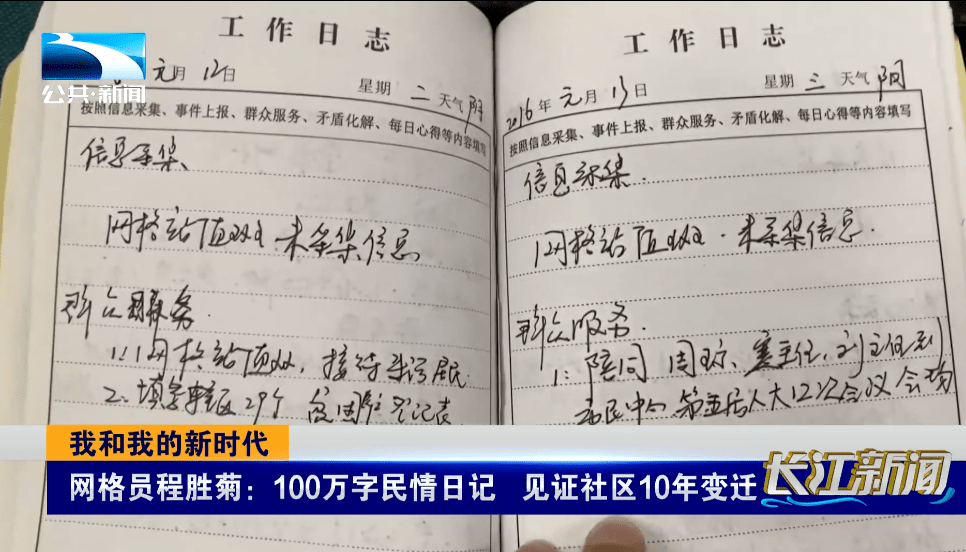 公共·新闻
工作日志
元月12日
星期 二 天气 阴
按照信息采集、事件上报、群众服务、矛盾化解、每日心得等内容填写
信息采集、
网格站值班 未采集信息
群众服务.
1:网格站值班, 接待来访居民
2、填写辖区29个贫困 登记表
工作日志
2016年 元月13日
星期 三 天气 阴
按照信息采集、事件上报、群众服务、矛盾化解、每日心得等内容填写
信息采集.
网格站值班. 未采集信息.
群众服务.
1: 陪同 周 主任、刘主任到
市民中心 第五届人大12次会议会场
我和我的新时代
网格员程胜菊：100万字民情日记 见证社区10年变迁
长江新闻